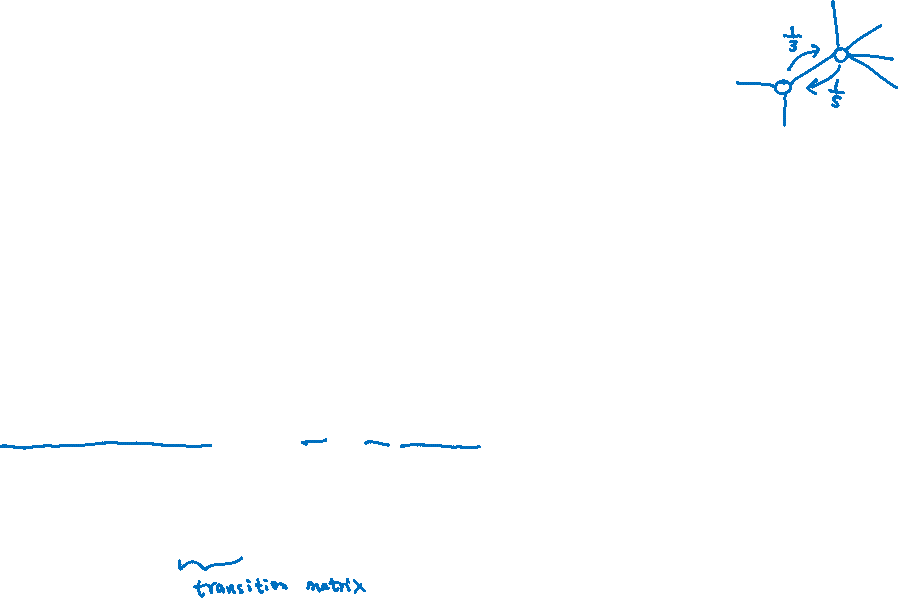 1/3
1/5
transition matrix